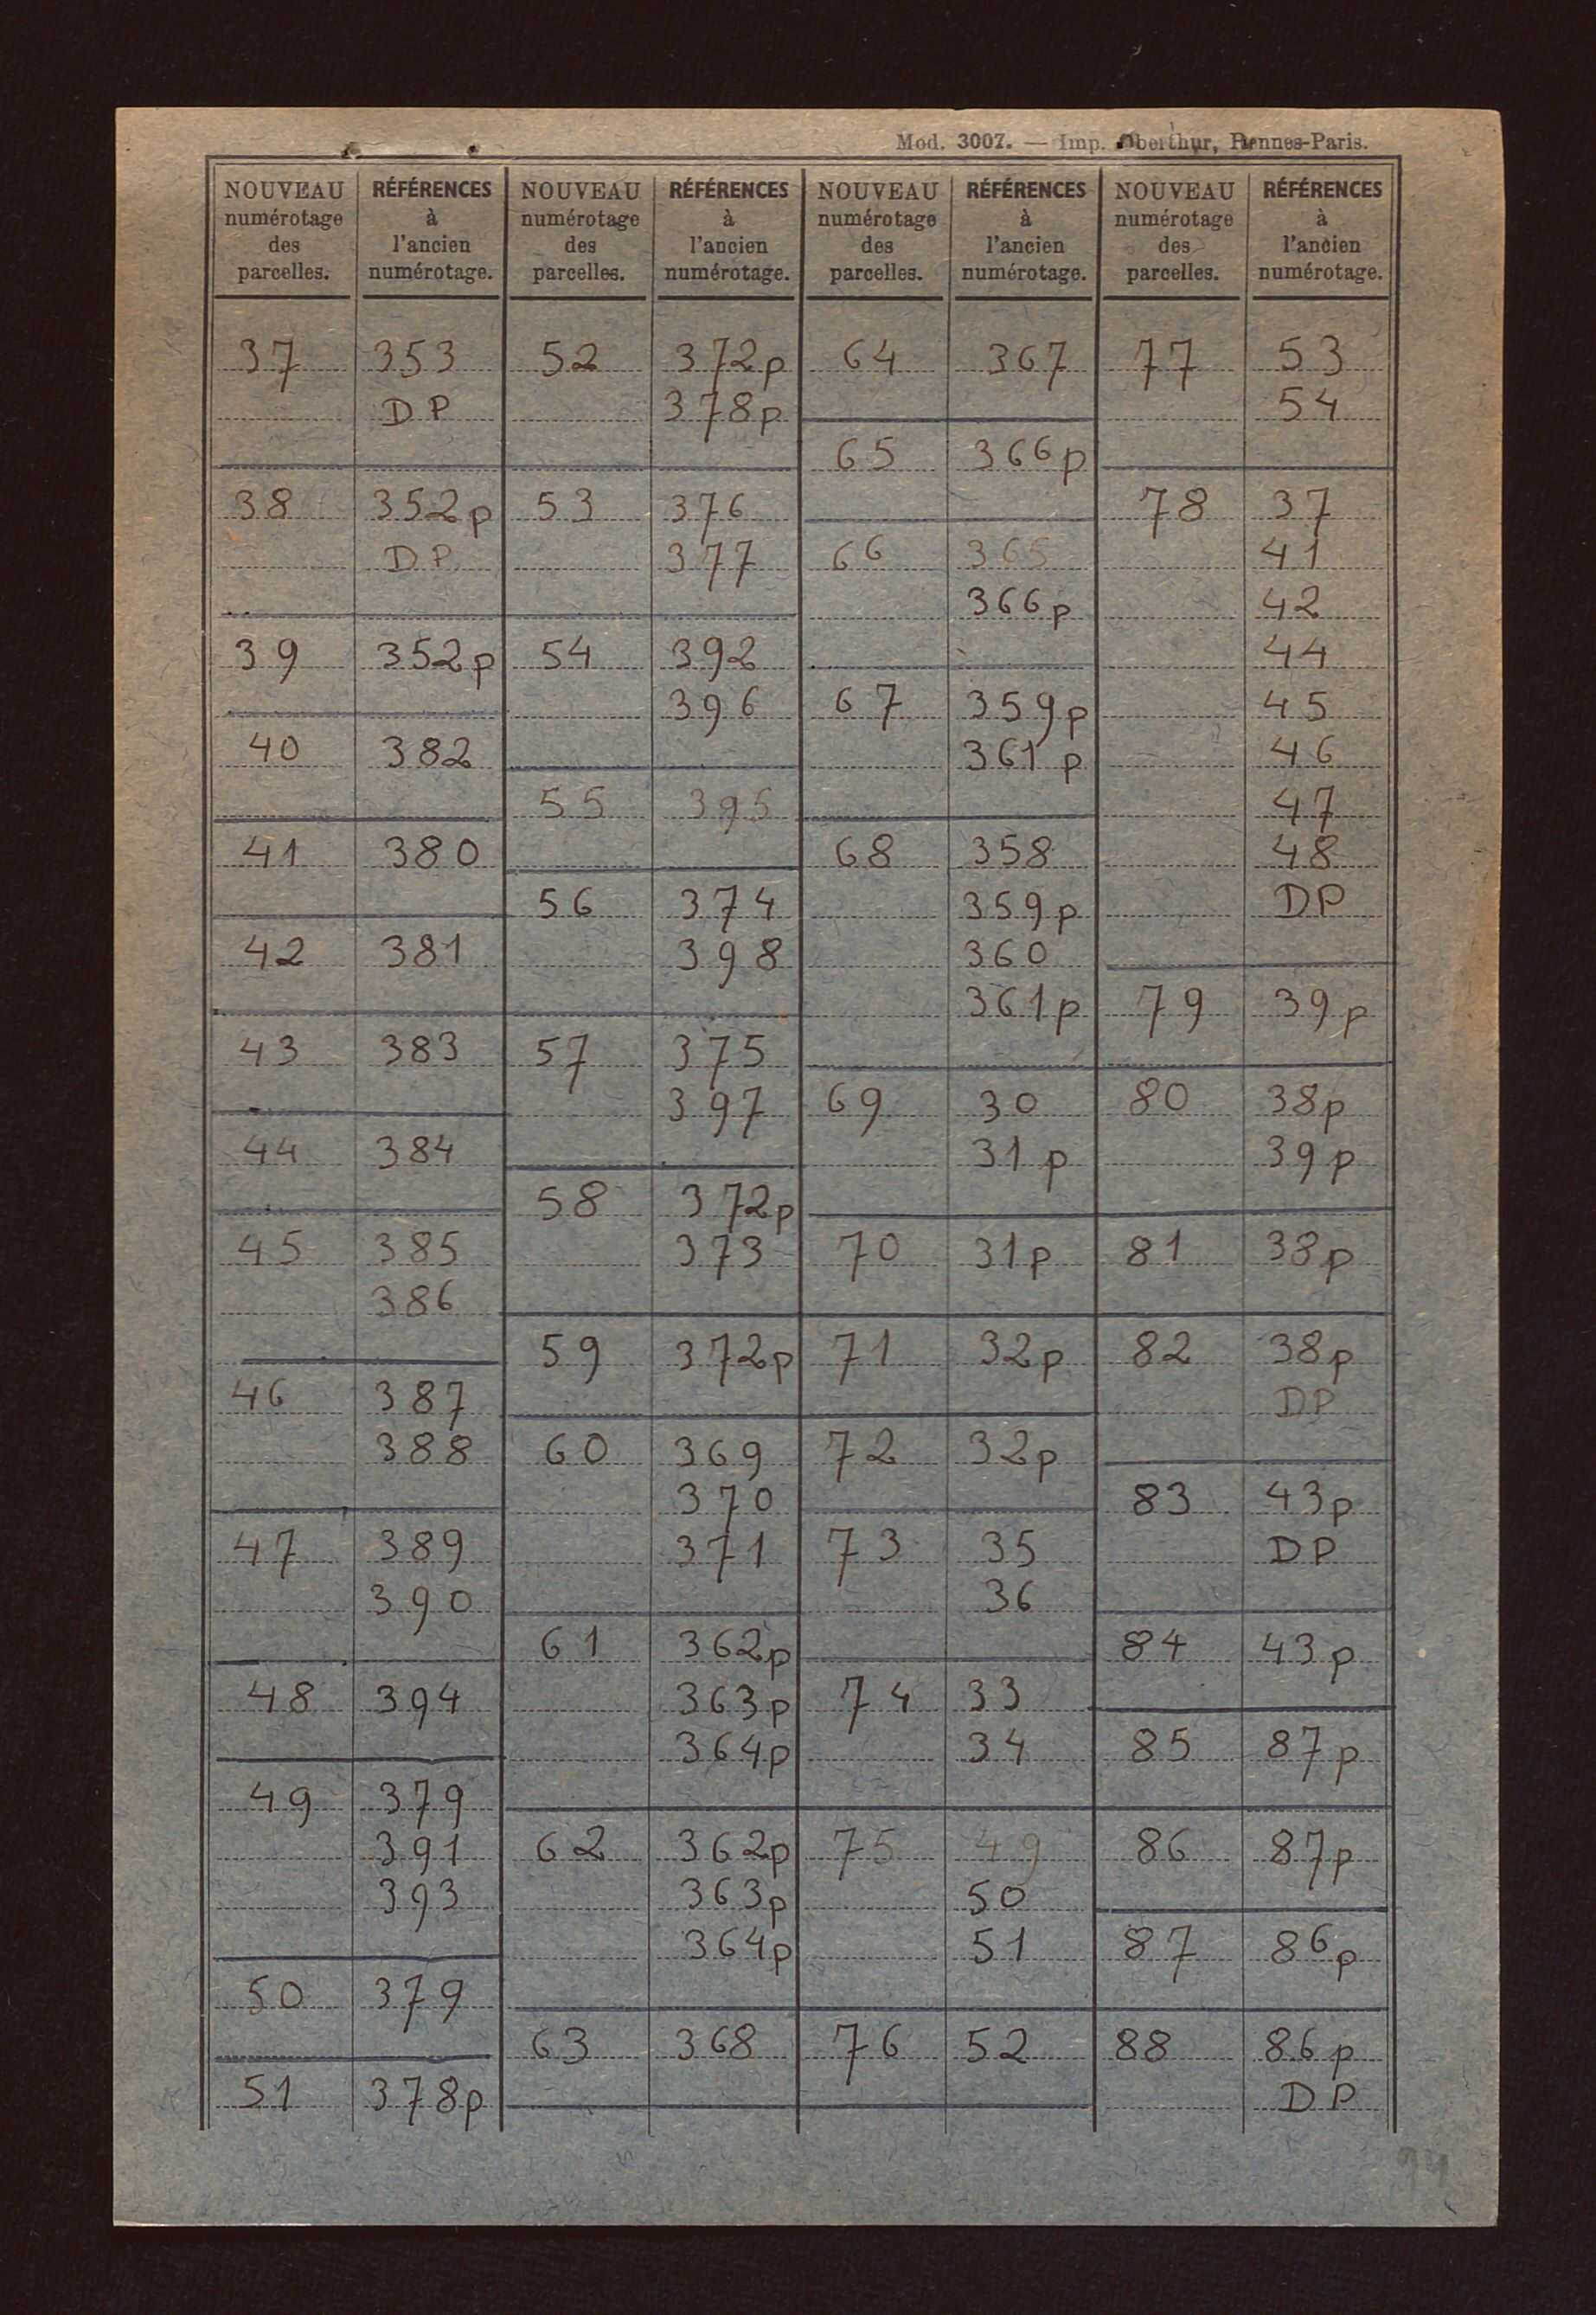 Mod. 3007. — Imp. Oberthur, Rennes-Paris.
NOUVEAU
numérotage
des
parcelles.
RÉFÉRENCES
à
l'ancien
numérotage.
37 353
DP
38 352p
DP
39 352p
40 382
41 380
42 381
43 383
44 384
45 385
386
46 387
388
47 389
390
48 394
49 379
391
393
50 379
51 378p
NOUVEAU
numérotage
des
parcelles.
RÉFÉRENCES
à
l'ancien
numérotage.
52 372p
378p
53 376
377
54 392
396
55 395
56 374
398
57 375
397
58 372p
373
59 372p
60 369
370
371
61 362p
363p
364p
62 362p
363p
364p
63 368
NOUVEAU
numérotage
des
parcelles.
RÉFÉRENCES
à
l'ancien
numérotage.
64 367
65 366p
66 365
366p
67 359p
361p
68 358
359p
360
361p
69 30
31p
70 31p
71 32p
72 32p
73 35
36
74 33
34
75 49
50
51
76 52
NOUVEAU
numérotage
des
parcelles.
RÉFÉRENCES
à
l'ancien
numérotage.
77 53
54
78 37
41
42
44
45
46
47
48
DP
79 39p
80 38p
39p
81 38p
82 38p
DP
83 43p
DP
84 43p
85 87p
86 87p
87 86p
88 86p
DP